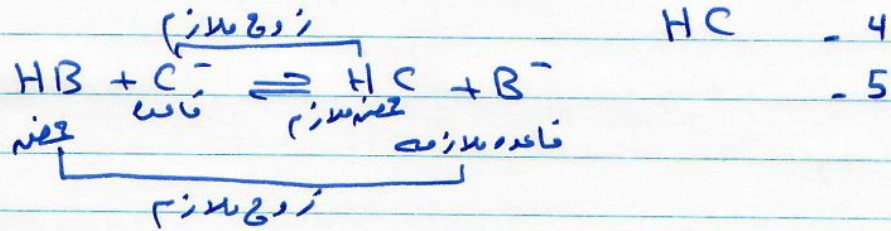 4 - HC
زوج ملازم
5 - HB + C⁻ ⇌ HC + B⁻
حمض قاعدة حمض ملازم قاعدة ملازمه
زوج ملازم